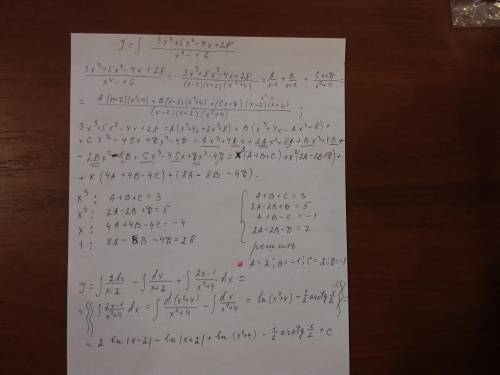 y = ∫ (3x³+5x²-4x+28)/(x⁴-16)
(3x³+5x²-4x+28)/(x⁴-16) = (3x³+5x²-4x+28)/((x-2)(x+2)(x²+4)) = A/(x-2) + B/(x+2) + (Cx+D)/(x²+4) =
= (A(x+2)(x²+4) + B(x-2)(x²+4) + (Cx+D)(x-2)(x+2))/((x-2)(x+2)(x²+4)) ;
3x³+5x²-4x+28 = A(x³+4x+2x²+8) + B(x³+4x-2x²+8) +
+ Cx³-4Cx+Dx²-4D = Ax³+4Ax+2Ax²+8A+Bx³+4Bx-
-2Bx²-8B+Cx³-4Cx+Dx²-4D = x³(A+B+C)+x²(2A-2B+D)+
+ x(4A+4B-4C)+(8A-8B-4D).
x³: A+B+C=3
x²: 2A-2B+D=5
x: 4A+4B-4C=-4
1: 8A-8B-4D=28
A+B+C=3
2A-2B+D=5
A+B-C=-1
2A-2B-D=7
решить
A=2; B=-1; C=2; D=-1
y = ∫ 2dx/(x-2) - ∫ dx/(x+2) + ∫ (2x-1)/(x²+4) dx =
= { ∫ (2x-1)/(x²+4) dx = ∫ d(x²+4)/(x²+4) - ∫ dx/(x²+4) = ln(x²+4) - 1/2 arctg x/2 } =
= 2 ln|x-2| - ln|x+2| + ln(x²+4) - 1/2 arctg x/2 + C